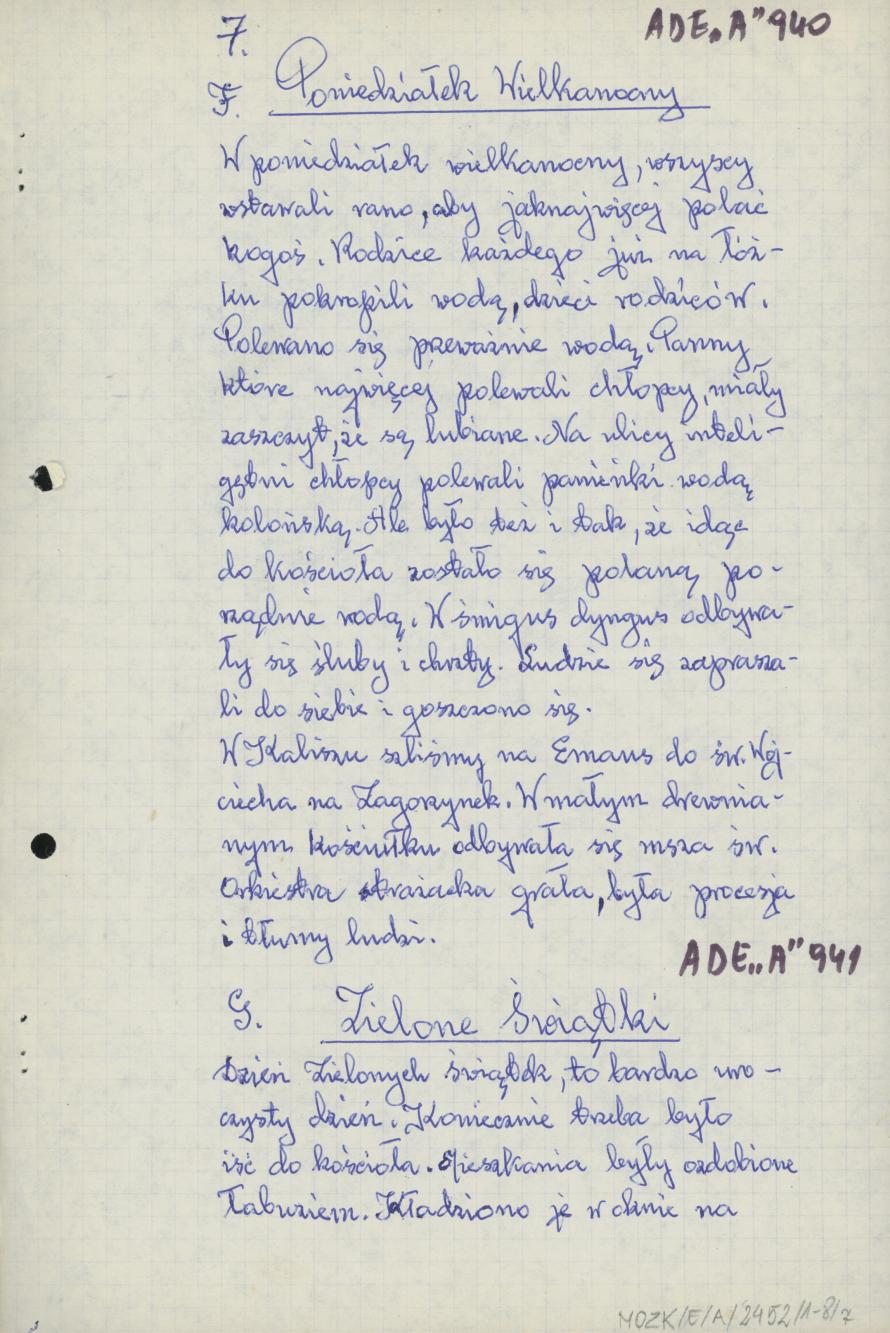 7.
ADE„A” 940
F. Poniedziałek Wielkanocny
W poniedziałek wielkanocny, wszyscy
wstawali rano, aby jaknajwięcej polać
kogoś. Rodzice każdego już na łóż-
ku pokropili wodą, dzieci rodziców.
Polewano się przeważnie wodą. Panny
które najwięcej polewali chłopcy, miały
zaszczyt, że są lubiane. Na ulicy inteli-
gętni chłopcy polewali panieńki wodą
kolońską. Ale było też i tak, że idąc
do kościoła zostało się polaną po-
rządnie wodą. W śmigus dyngus odbywa-
ły się śluby i chrzty. Ludzie się zaprasza-
li do siebie i goszczono się.
W Kaliszu szliśmy na Emaus do św. Woj-
ciecha na Zagorzynek. W małym drewnia-
nym kościułku odbywała się msza św.
Orkiestra strażacka grała, była procesja
i tłumy ludzi.
ADE„A” 941
G. Zielone Świątki
Dzień Zielonych Świątek, to bardzo uro-
czysty dzień. Koniecznie trzeba było
iść do kościoła. Mieszkania były ozdobione
łabuziem. Kładziono je w oknie na
MOZK/E/A/2452/1-8/7